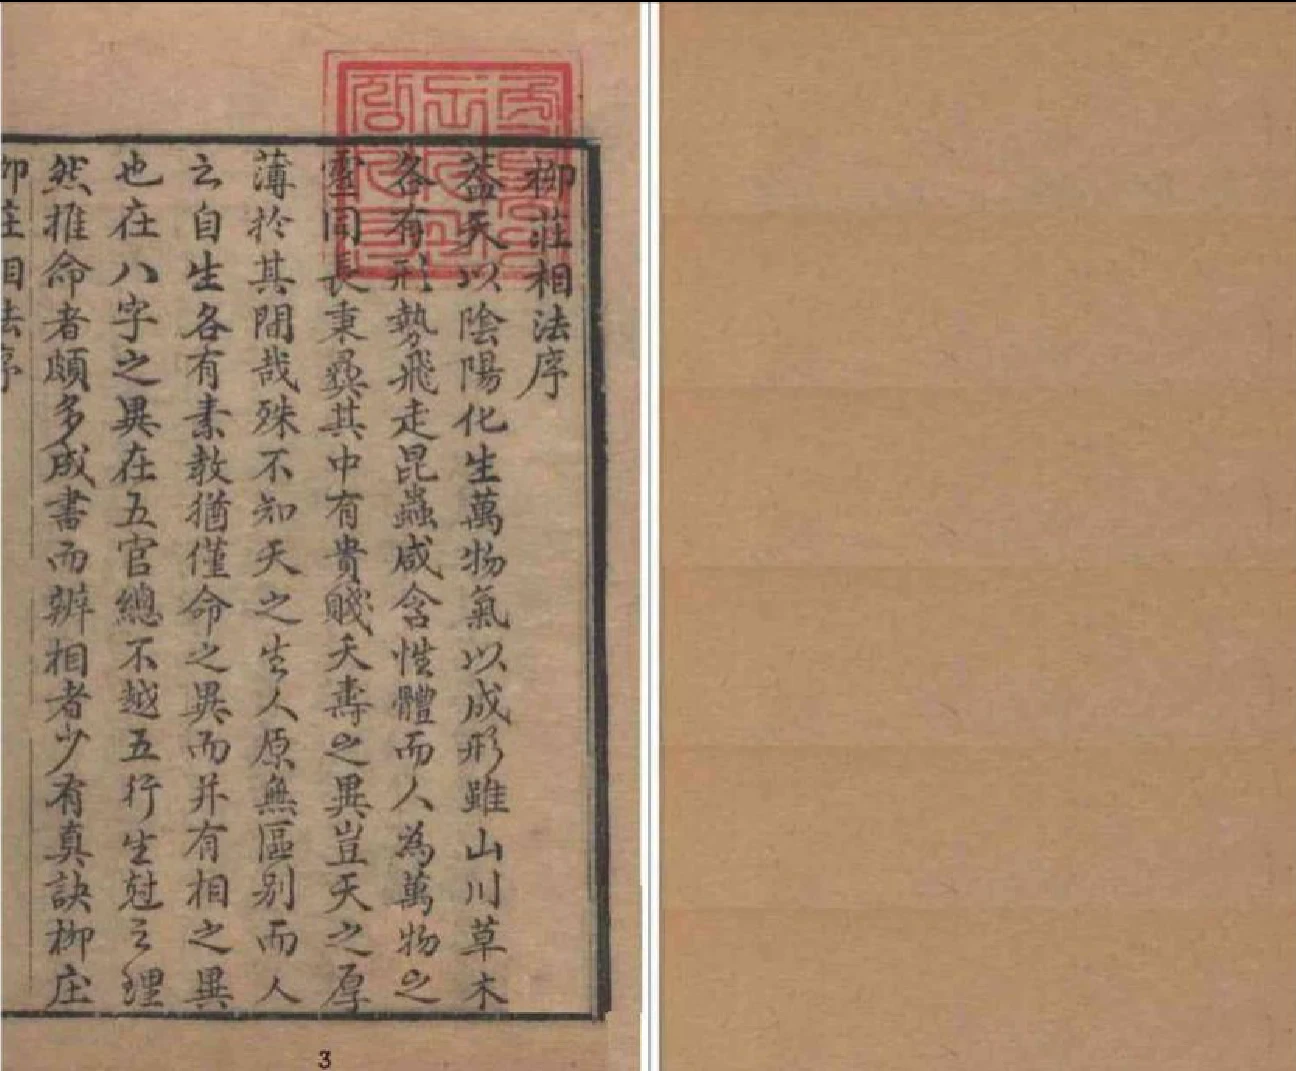 柳莊相法序
蓋天以陰陽化生萬物氣以成形雖山川草木
各有形勢飛走昆蟲咸含性體而人為萬物之
靈同長秉彝其中有貴賤夭壽之異豈天之厚
薄於其間哉殊不知天之生人原無區別而人
云自生各有素教猶僅命之異而并有相之異
也在八字之異在五官總不越五行生尅之理
然推命者頗多成書而辨相者少有真訣柳庄
柳莊相法序
3